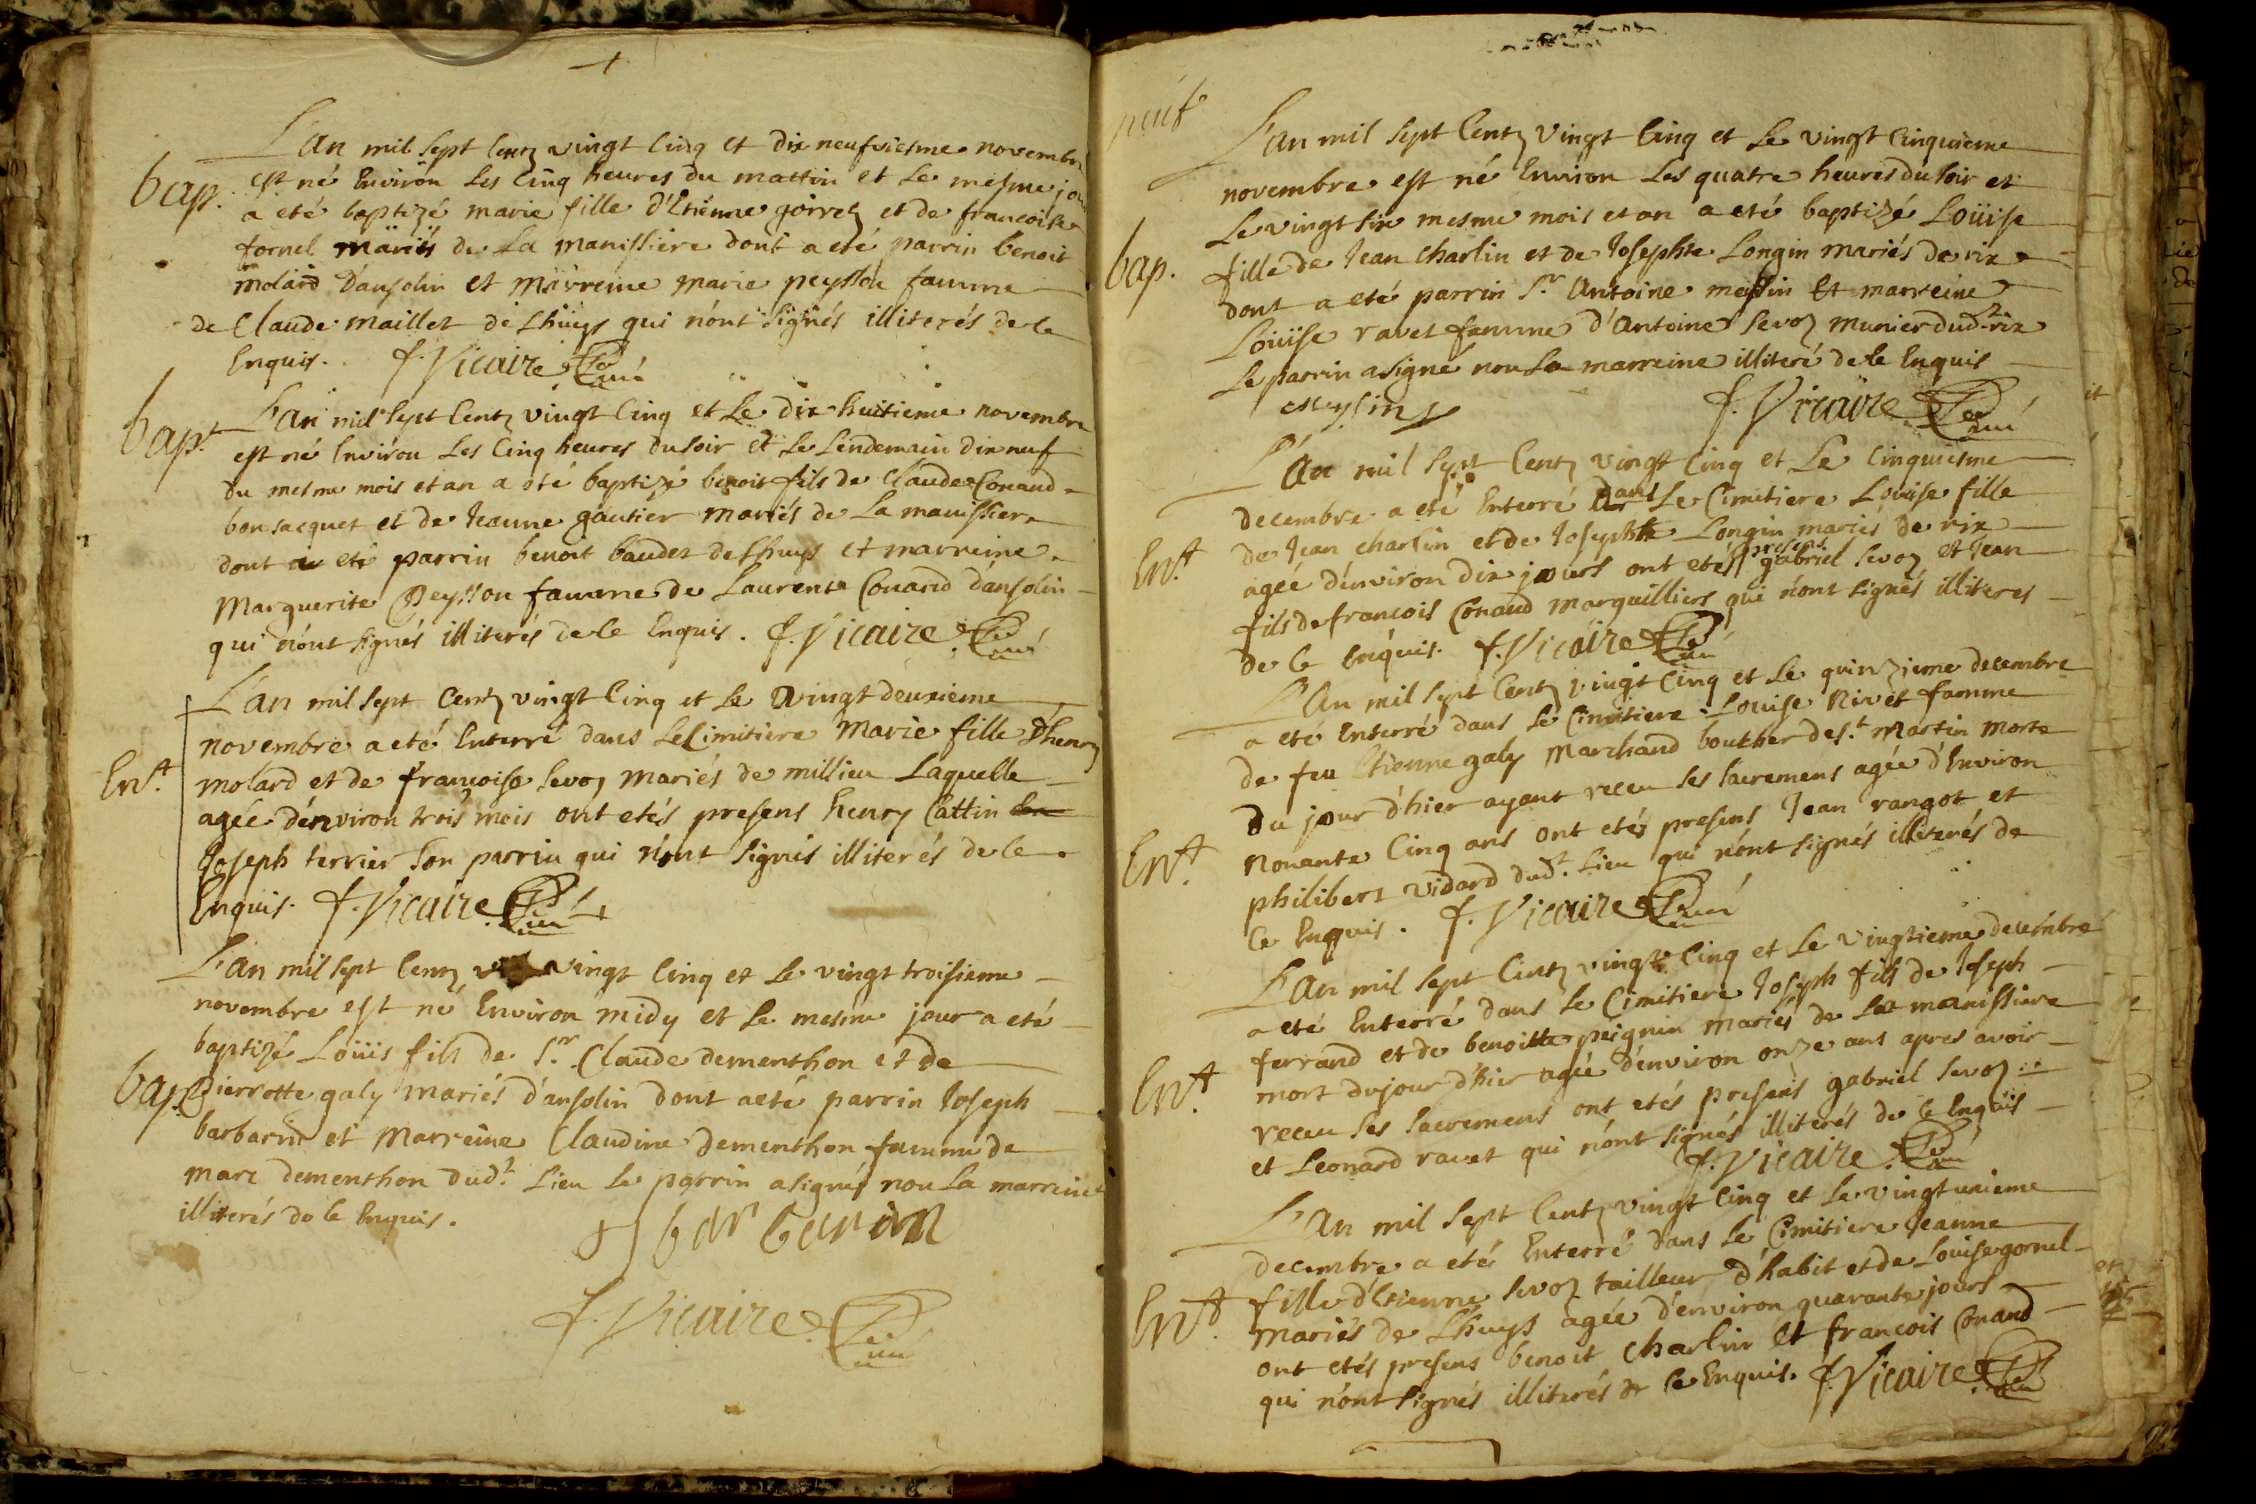 L'an mil sept centz vingt cinq et dix neufviesme novembre
bap. est né Environ les cinq heures du mattin et le mesme jou
a eté baptizé marie fille d'Etienne goirrez et de francoise
fornel mariés de La manissiere dont a eté parrin benoit
molard d'ansolin et marreine marie peysson famme
de Claude maillet de Lhuys qui n'ont signés illiterés de le
Enquis. f. Vicaire Curé
bapt. L'an mil sept Centz vingt Cinq et Le dix huitieme novembre
est né Environ Les Cinq heures du soir et le Lendemain dix neuf
du mesme mois et an a été baptizé benoit fils de Claude Conand
bon jacquet et de Jeanne gautier mariés de La manissiere
dont a eté parrin benoit baudet de Lhuys et marreine
Marguerite Peysson famme de Laurent Conand d'ansolin
qui n'ont signés illiterés de le Enquis. f. Vicaire Curé
L'an mil sept Centz vingt Cinq et Le vingt deuxieme
novembre a eté Enterré dans Le Cimitiere Marie fille d'henry
Ent. molard et de francoise sevoz mariés de millieu Laquelle
agée d'environ trois mois ont etés presens henry Cattin
Joseph terrier son parrin qui n'ont signés illiterés de le
Enquis. f. Vicaire Curé
L'an mil sept Centz vingt Cinq et Le vingt troisieme
novembre est né Environ midy et le mesme jour a eté
baptizé Loüis fils de Sr. Claude dementhon et de
bap. Pierrette galy mariés d'ansolin dont a eté parrin Joseph
barbarin et Marreine Claudine dementhon famme de
marc dementhon dudt. Lieu le parrin a signés non La marreine
illiterés de le Enquis.
J barbarin
f. Vicaire Curé
neuf
L'an mil sept Centz vingt Cinq et Le vingt Cinquieme
novembre est né Environ Les quatre heures du soir et
Le vingt six mesme mois et an a eté baptizé Loüise
bap. fille de Jean Charlin et de Josephte Longin mariés de rix
dont a eté parrin Sr. Antoine meysin Et marreine
Loüise ravet famme d'Antoine sevoz munier dudt. rix
Le parrin a signé non La marreine illiteré de le Enquis
meysin f. Vicaire Curé
L'an mil sept Centz vingt Cinq et Le Cinquiesme
decembre a eté Enterré dans Le Cimitiere Louise fille
Ent. de Jean charlin et de Josephte Longin mariés de rix
agée d'environ dix jours ont etés presens gabriel sevoz et Jean
fils de francois Conand marguilliers qui n'ont signés illiteres
de le Enquis. f. Vicaire Curé
L'an mil sept Centz vingt Cinq et Le quinzieme decembre
a eté Enterré dans Le Cimitiere Louise Nivet famme
de feu Etienne galy Marchand boucher de St. Martin morte
du jour d'hier ayant receu ses sacremens agée d'Environ
Ent. Nonante Cinq ans ont etés presens Jean rangot et
philibert vidard dudt. Lieu qui n'ont signés illiterés de
le Enquis. f. Vicaire Curé
L'an mil sept Centz vingt Cinq et Le vingtieme decembre
a eté Enterré dans Le Cimitiere Joseph fils de Joseph
ferrand et de benoitte peignin mariés de La manissiere
Ent. mort du jour d'hier agée d'environ onze ans apres avoir
receu ses sacremens ont etés presens gabriel sevoz
et Leonard ravet qui n'ont signés illiterés de le Enquis
f. Vicaire Curé
L'an mil sept Centz vingt Cinq et Le vingt unieme
decembre a etés Enterré dans Le Cimitiere Jeanne
fille d'Etienne sevoz tailleur d'habit et de Louise gornel
Ent. mariés de Lhuys agée d'environ quarante jours
ont etés presens benoit charlin Et francois Conand
qui n'ont signés illiterés de le Enquis. f. Vicaire Curé